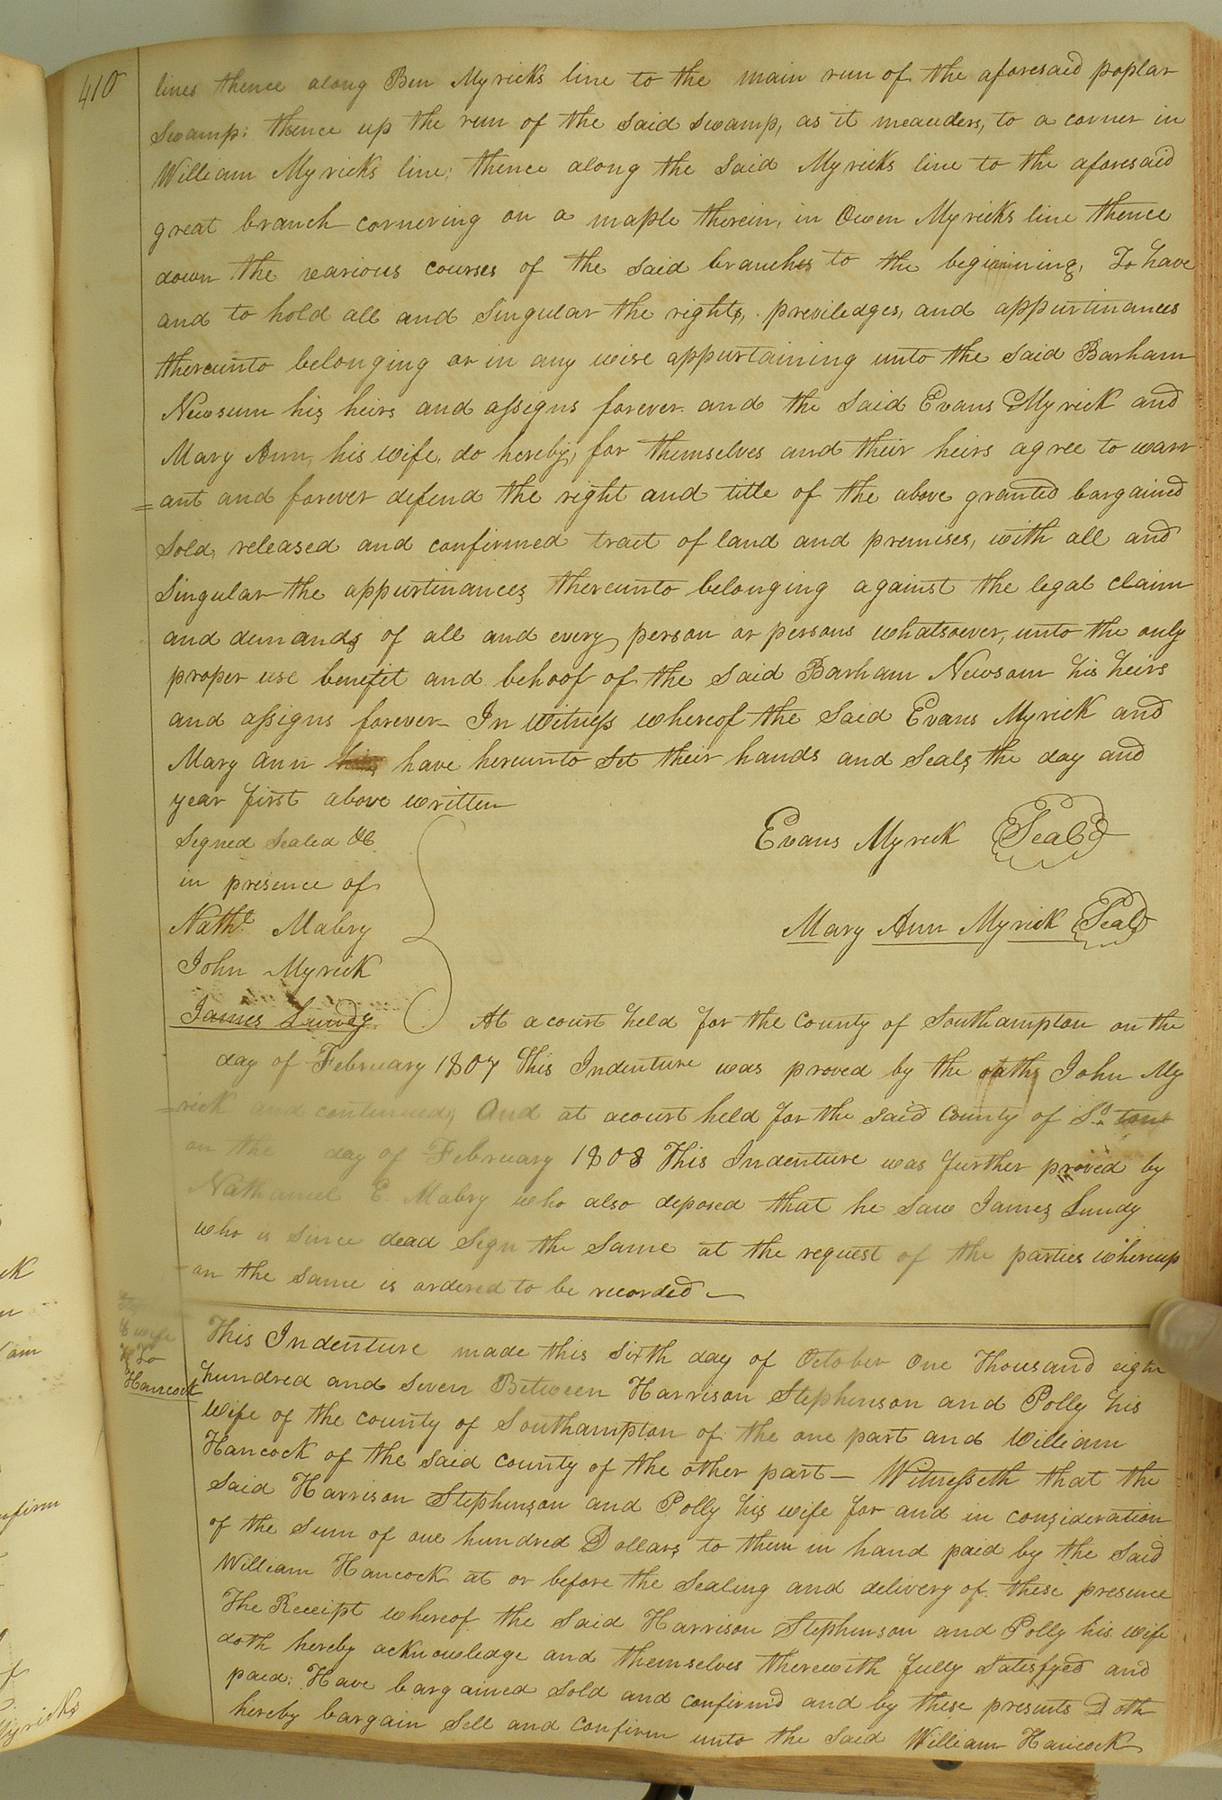 410
lines thence along Ben Myricks line to the main run of the aforesaid poplar
Swamp; thence up the run of the said swamp, as it meanders, to a corner in
William Myricks line; thence along the said Myricks line to the aforesaid
great branch cornering on a maple therein, in Owen Myricks line thence
down the various courses of the said branches to the beginning, To have
and to hold all and Singular the rights, priviledges, and appurtinances
thereunto belonging or in any wise appurtaining unto the said Barham
Newsum his heirs and assigns forever. and the said Evans Myrick and
Mary Ann, his wife, do hereby, for themselves and their heirs agree to warr
=ant and forever defend the right and title of the above granted bargained
Sold, released and confirmed tract of land and premises, with all and
Singular the appurtinances thereunto belonging against the legal claim
and demands of all and every person or persons whatsoever, unto the only
proper use benefit and behoof of the said Barham Newsom his heirs
and assigns forever - In Witness whereof the said Evans Myrick and
Mary Ann have hereunto set their hands and Seals the day and
year first above written
Signed Sealed &c
in presence of
Nathl. Mabry
John Myrick
James Lundy
Evans Myrick Seal
Mary Ann Myrick Seal
At a court held for the County of Southampton on the
day of February 1807 This Indenture was proved by the oaths John My
=rick and continued, And at a court held for the said County of So. ton
on the day of February 1808 This Indenture was further proved by
Nathaniel E. Mabry who also deposed that he saw James Lundy
who is since dead Sign the Same at the request of the parties whereup
-on the same is ordered to be recorded -
& wife
To
Hancock
This Indenture made this sixth day of October One Thousand eight
hundred and seven Between Harrison Stephenson and Polly his
Wife of the county of Southampton of the one part and William
Hancock of the said County of the other part - Witnesseth that the
Said Harrison Stephenson and Polly his wife for and in consideration
of the Sum of one hundred Dollars to them in hand paid by the said
William Hancock at or before the Sealing and delivery of these presence
The Receipt whereof the said Harrison Stephenson and Polly his wife
doth hereby acknowledge and themselves therewith fully Satisfyed and
paid; Have bargained Sold and confirmd and by these presents Doth
hereby bargain Sell and Confirm unto the said William Hancock